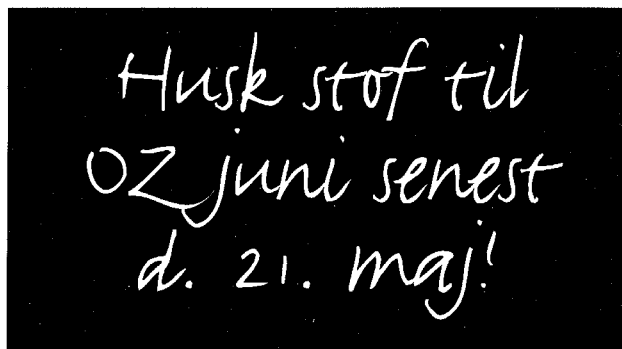 Husk stof til
OZ juni senest
d. 21. maj!